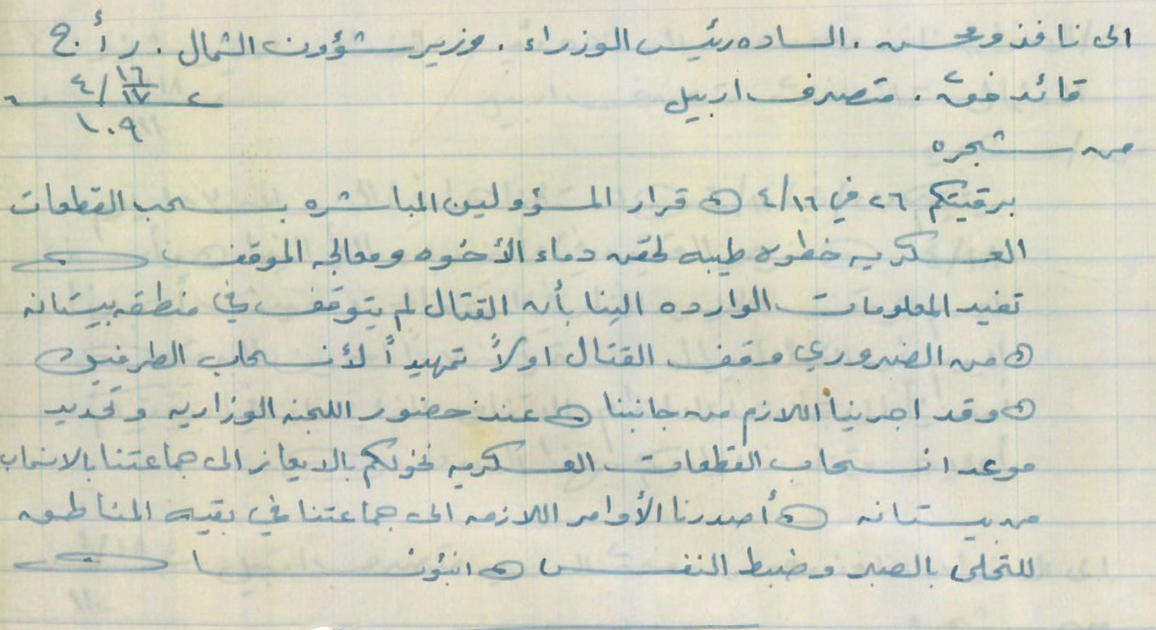 الى نافذ ومحسن . الساده رئيس الوزراء . وزير شؤون الشمال . ر أ ج
قائد فق٢ . متصرف اربيل
١٦/١٧ / ٤
١٠٩
من / شجره
برقيتكم ٢٦ في ٤/١٦ ه قرار المسؤولين المباشره بسحب القطعات
العسكريه خطوه طيبه لحقن دماء الأخوه ومعالجه الموقف ه
تفيد المعلومات الوارده الينا بأن القتال لم يتوقف في منطقه بيستانه
ه من الضروري وقف القتال اولاً تمهيداً لأنسحاب الطرفين
ه وقد اجرينا اللازم من جانبنا ه عند حضور اللجنه الوزاريه وتحديد
موعد انسحاب القطعات العسكريه نخولكم بالايعاز الى جماعتنا بالانسحاب
من بيستانه ه أصدرنا الأوامر اللازمه الى جماعتنا في بقيه المناطق
للتحلى بالصبر وضبط النفس ه انبؤنا ه